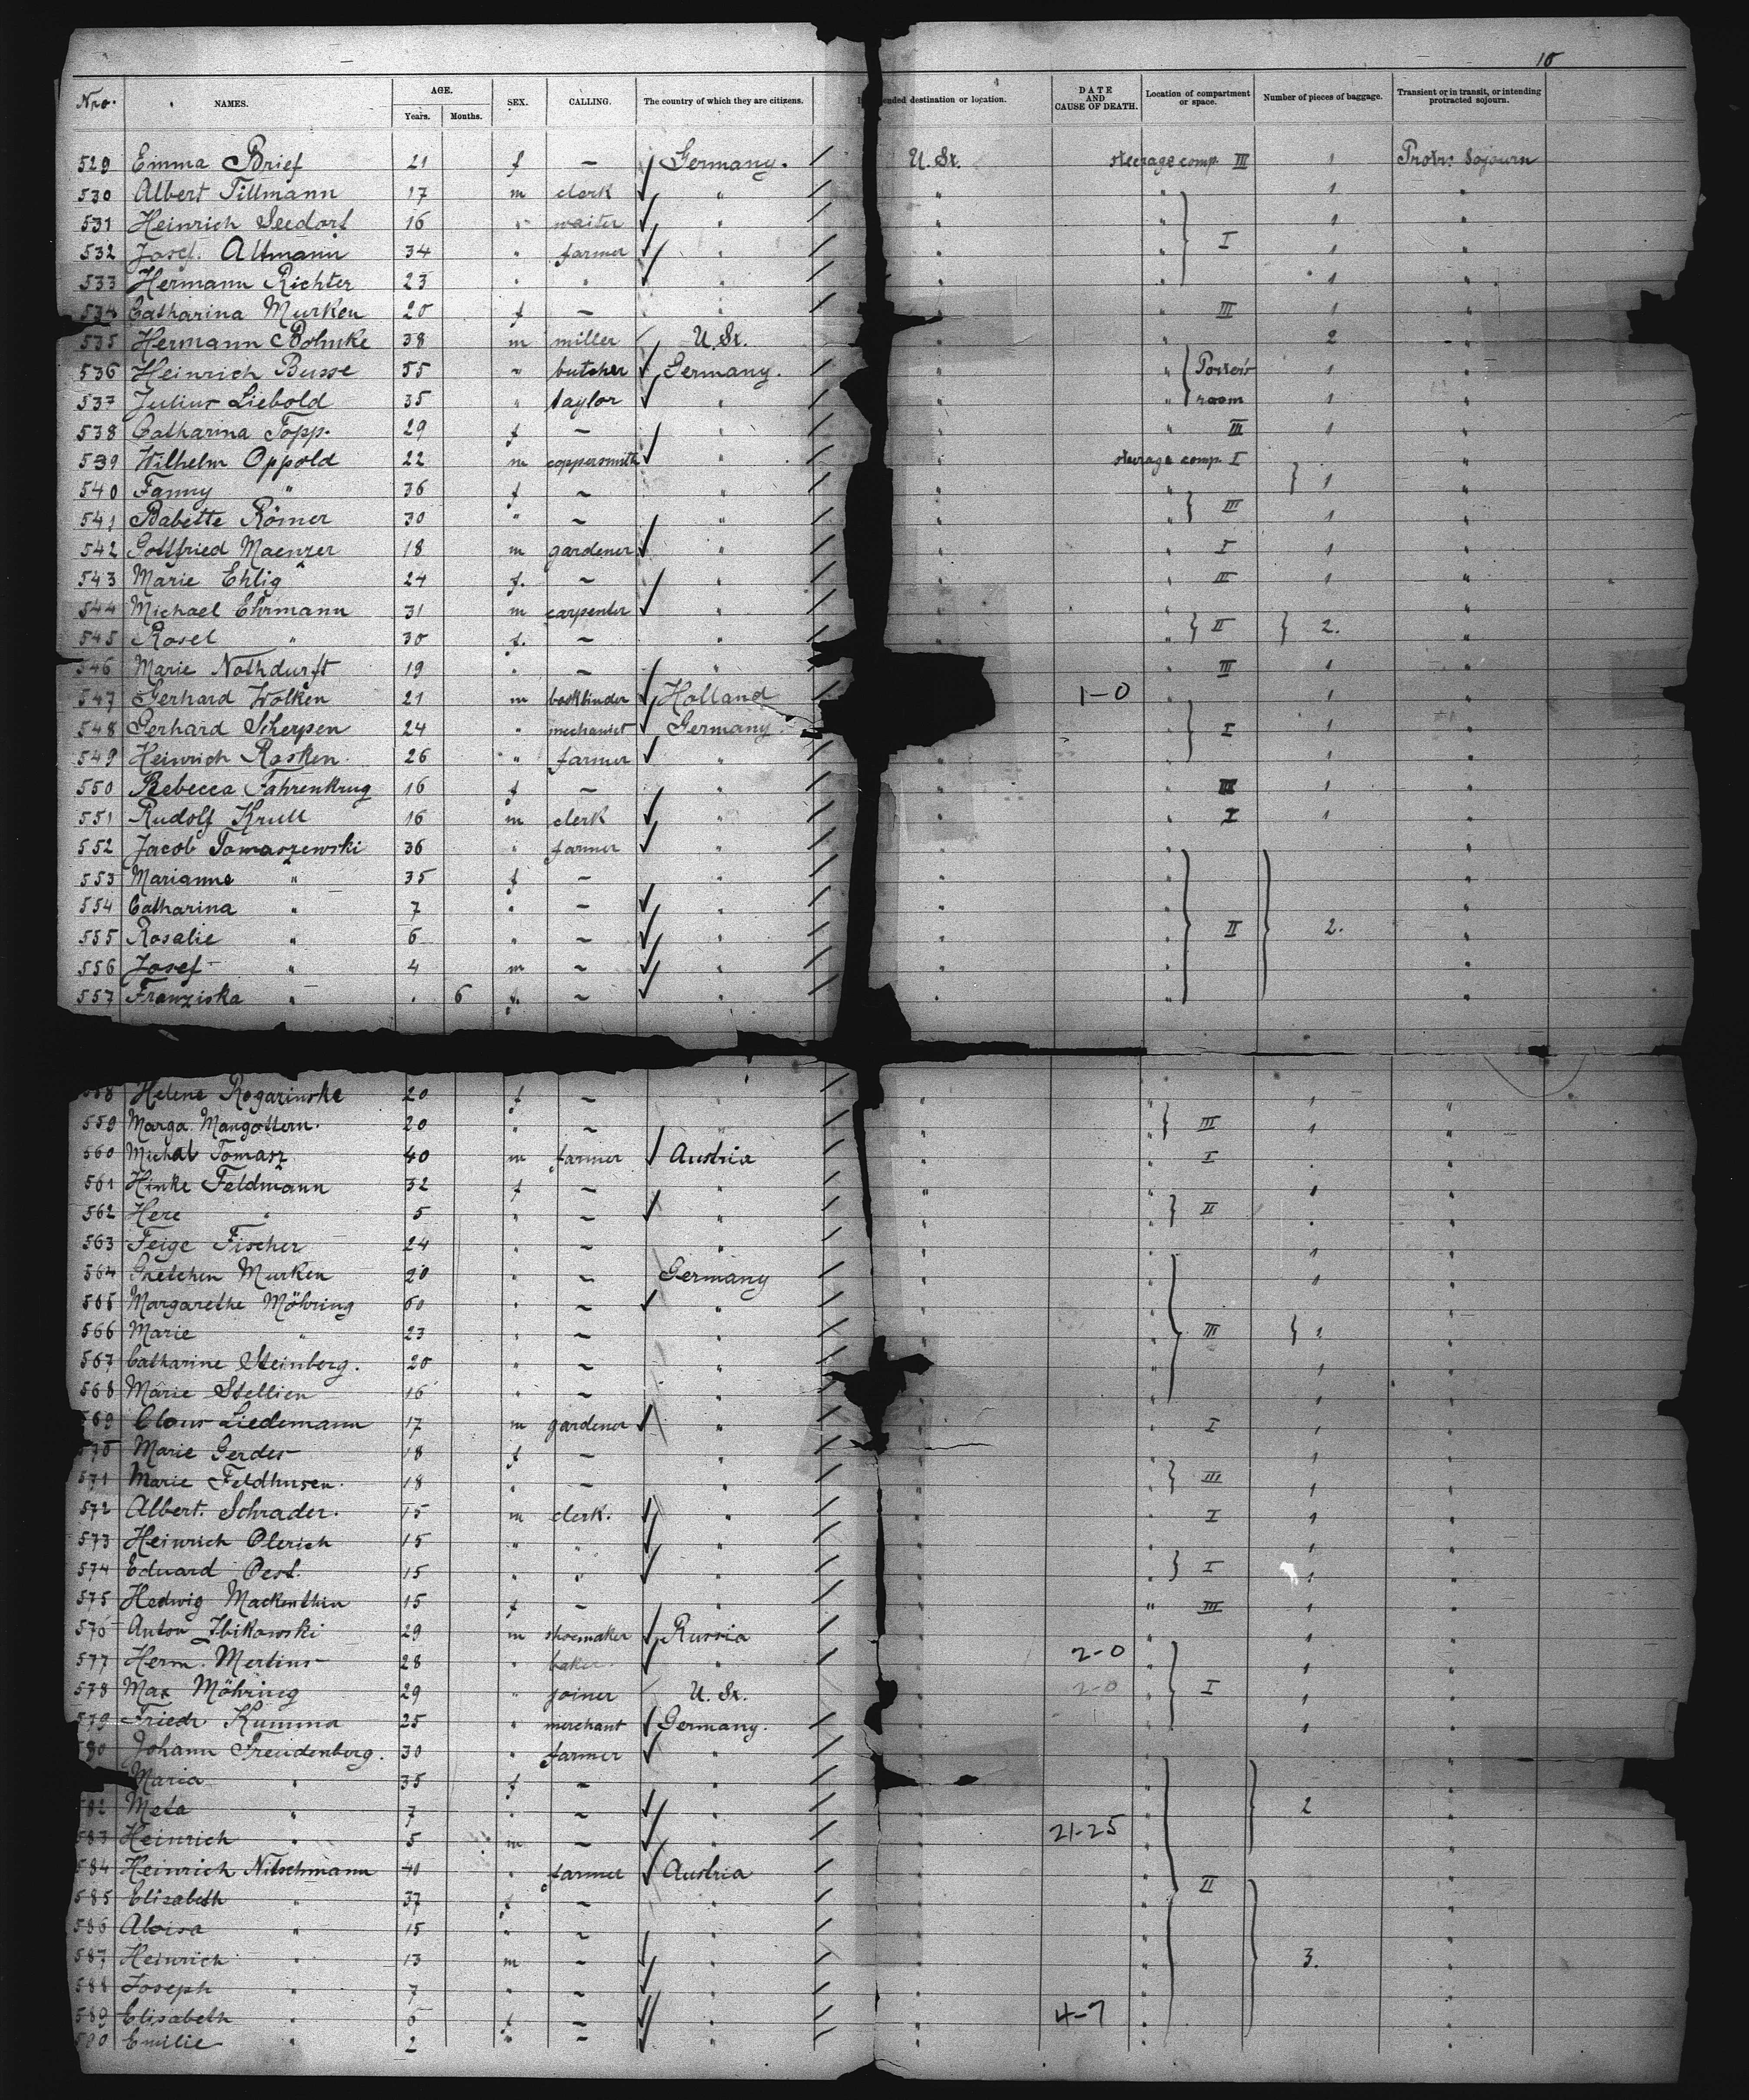 10
Nro. NAMES. AGE. Years. Months. SEX. CALLING. The country of which they are citizens. ended destination or location. DATE AND CAUSE OF DEATH. Location of compartment or space. Number of pieces of baggage. Transient or in transit, or intending protracted sojourn.
529 Emma Brief 21 f — Germany. U. St. steerage comp. III 1 Protr. Sojourn
530 Albert Tillmann 17 m clerk " " " 1 "
531 Heinrich Seedorf 16 " waiter " " " 1 "
532 Josef. Altmann 34 " farmer " " " I 1 "
533 Hermann Richter 23 " " " " " 1 "
534 Catharina Murken 20 f — " " " III 1 "
535 Hermann Bohnke 38 m miller U. St. " 2 "
536 Heinrich Busse 55 " butcher Germany. " " Porter's 1 "
537 Julius Liebold 35 " taylor " " " room 1 "
538 Catharina Topp. 29 f — " " " III 1 "
539 Wilhelm Oppold 22 m coppersmith " " steerage comp. I "
540 Fanny " 36 f — " " " 1 "
541 Babette Römer 30 " — " " " III 1 "
542 Gottfried Maenzer 18 m gardener " " " I 1 "
543 Marie Ehlig 24 f. — " " " III 1 "
544 Michael Ehrmann 31 m carpenter " " " "
545 Rosel " 30 f. — " " " II 2. "
546 Marie Nothdurft 19 " — " " III 1 "
547 Gerhard Wolken 21 m bookbinder Holland 1-0 " 1 "
548 Gerhard Scherpen 24 " mechanict Germany " " I 1 "
549 Heinrich Rasken. 26 " farmer " " " 1 "
550 Rebecca Fahrenkrug 16 f — " " " III 1 "
551 Rudolf Krull 16 m clerk " " " I 1 "
552 Jacob Tomaszewski 36 " farmer " " " "
553 Marianne " 35 f — " " " "
554 Catharina " 7 " — " " " "
555 Rosalie " 6 " — " " " II 2. "
556 Josef " 4 m — " " " "
557 Franziska " . 6 f. — " " " "
558 Helene Rogazinske 20 f — " " " 1 "
559 Marga. Mangottern. 20 " — " " " III 1 "
560 Michal Tomasz 40 m farmer Austria " " I "
561 Hinke Feldmann 32 f — " " " 1 "
562 Here " 5 " — " " " II "
563 Feige Fischer 24 " — " " " 1 "
564 Gretchen Murken 20 " — Germany " " 1 "
565 Margarethe Möhring 60 " — " " " "
566 Marie " 23 " — " " " III 1. "
567 Catharine Steinberg. 20 " — " " " 1 "
568 Marie Stellien 16 " — " " 1 "
569 Claus Liedemann 17 m gardener " " " I 1 "
570 Marie Gerdes 18 f — " " 1 "
571 Marie Feldhusen. 18 " — " " III 1 "
572 Albert. Schrader. 15 m clerk. " " " I 1 "
573 Heinrich Olerich 15 " " " " " 1 "
574 Eduard Pest. 15 " " " " " I 1 "
575 Hedwig Mackenthin 15 f — " " " III 1 "
576 Anton Zbikowski 29 m shoemaker Russia " " 1 "
577 Herm. Mertins 28 " baker. " " 2-0 " 1 "
578 Max Möhring 29 " joiner U. St. " 2-0 " I 1 "
579 Friedr. Kumma 25 " merchant Germany. " " 1 "
580 Johann Freudenberg. 30 " farmer " " " "
Maria " 35 f — " " " "
582 Meta " 7 " — " " " 2 "
583 Heinrich " 5 m — " " 21-25 " "
584 Heinrich Nitschmann 40 " farmer Austria " " "
585 Elisabeth " 37 f — " " " II "
586 Aloisa " 15 " — " " " "
587 Heinrich " 13 m — " " " 3. "
588 Joseph " 7 " — " " " "
589 Elisabeth " 5 f — " " 4-7 " "
590 Emilie " 2 " — " " " "